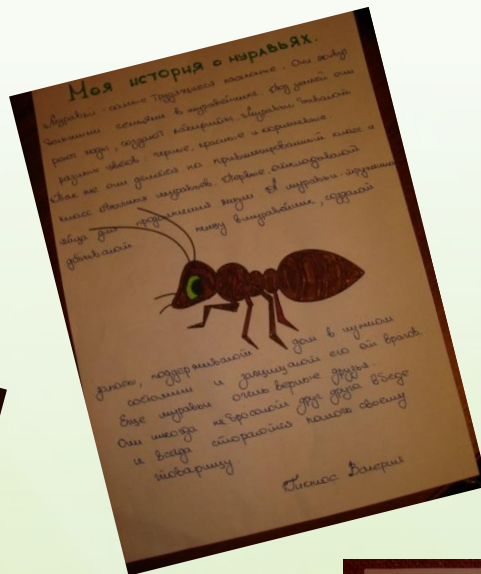 Моя история о муравьях.
Муравьи - самые трудящиеся насекомые. Они живут
большими семьями в муравейнике. Под землей они
роют ходы, создают лабиринты. Муравьи бывают
разных цветов: черные, красные и коричневые.
Так же они делятся на привилегированный класс и
класс обычных муравьев. Первые откладывают
яйца для продолжения муравьи-труженики
добывают пищу в муравейник, создают
запасы, поддерживают дом в нужном
состоянии и защищают его от врагов.
Еще муравьи очень верные друзья.
Они никогда не бросают друг друга в беде
и всегда стараются помочь своему
товарищу
Валерия